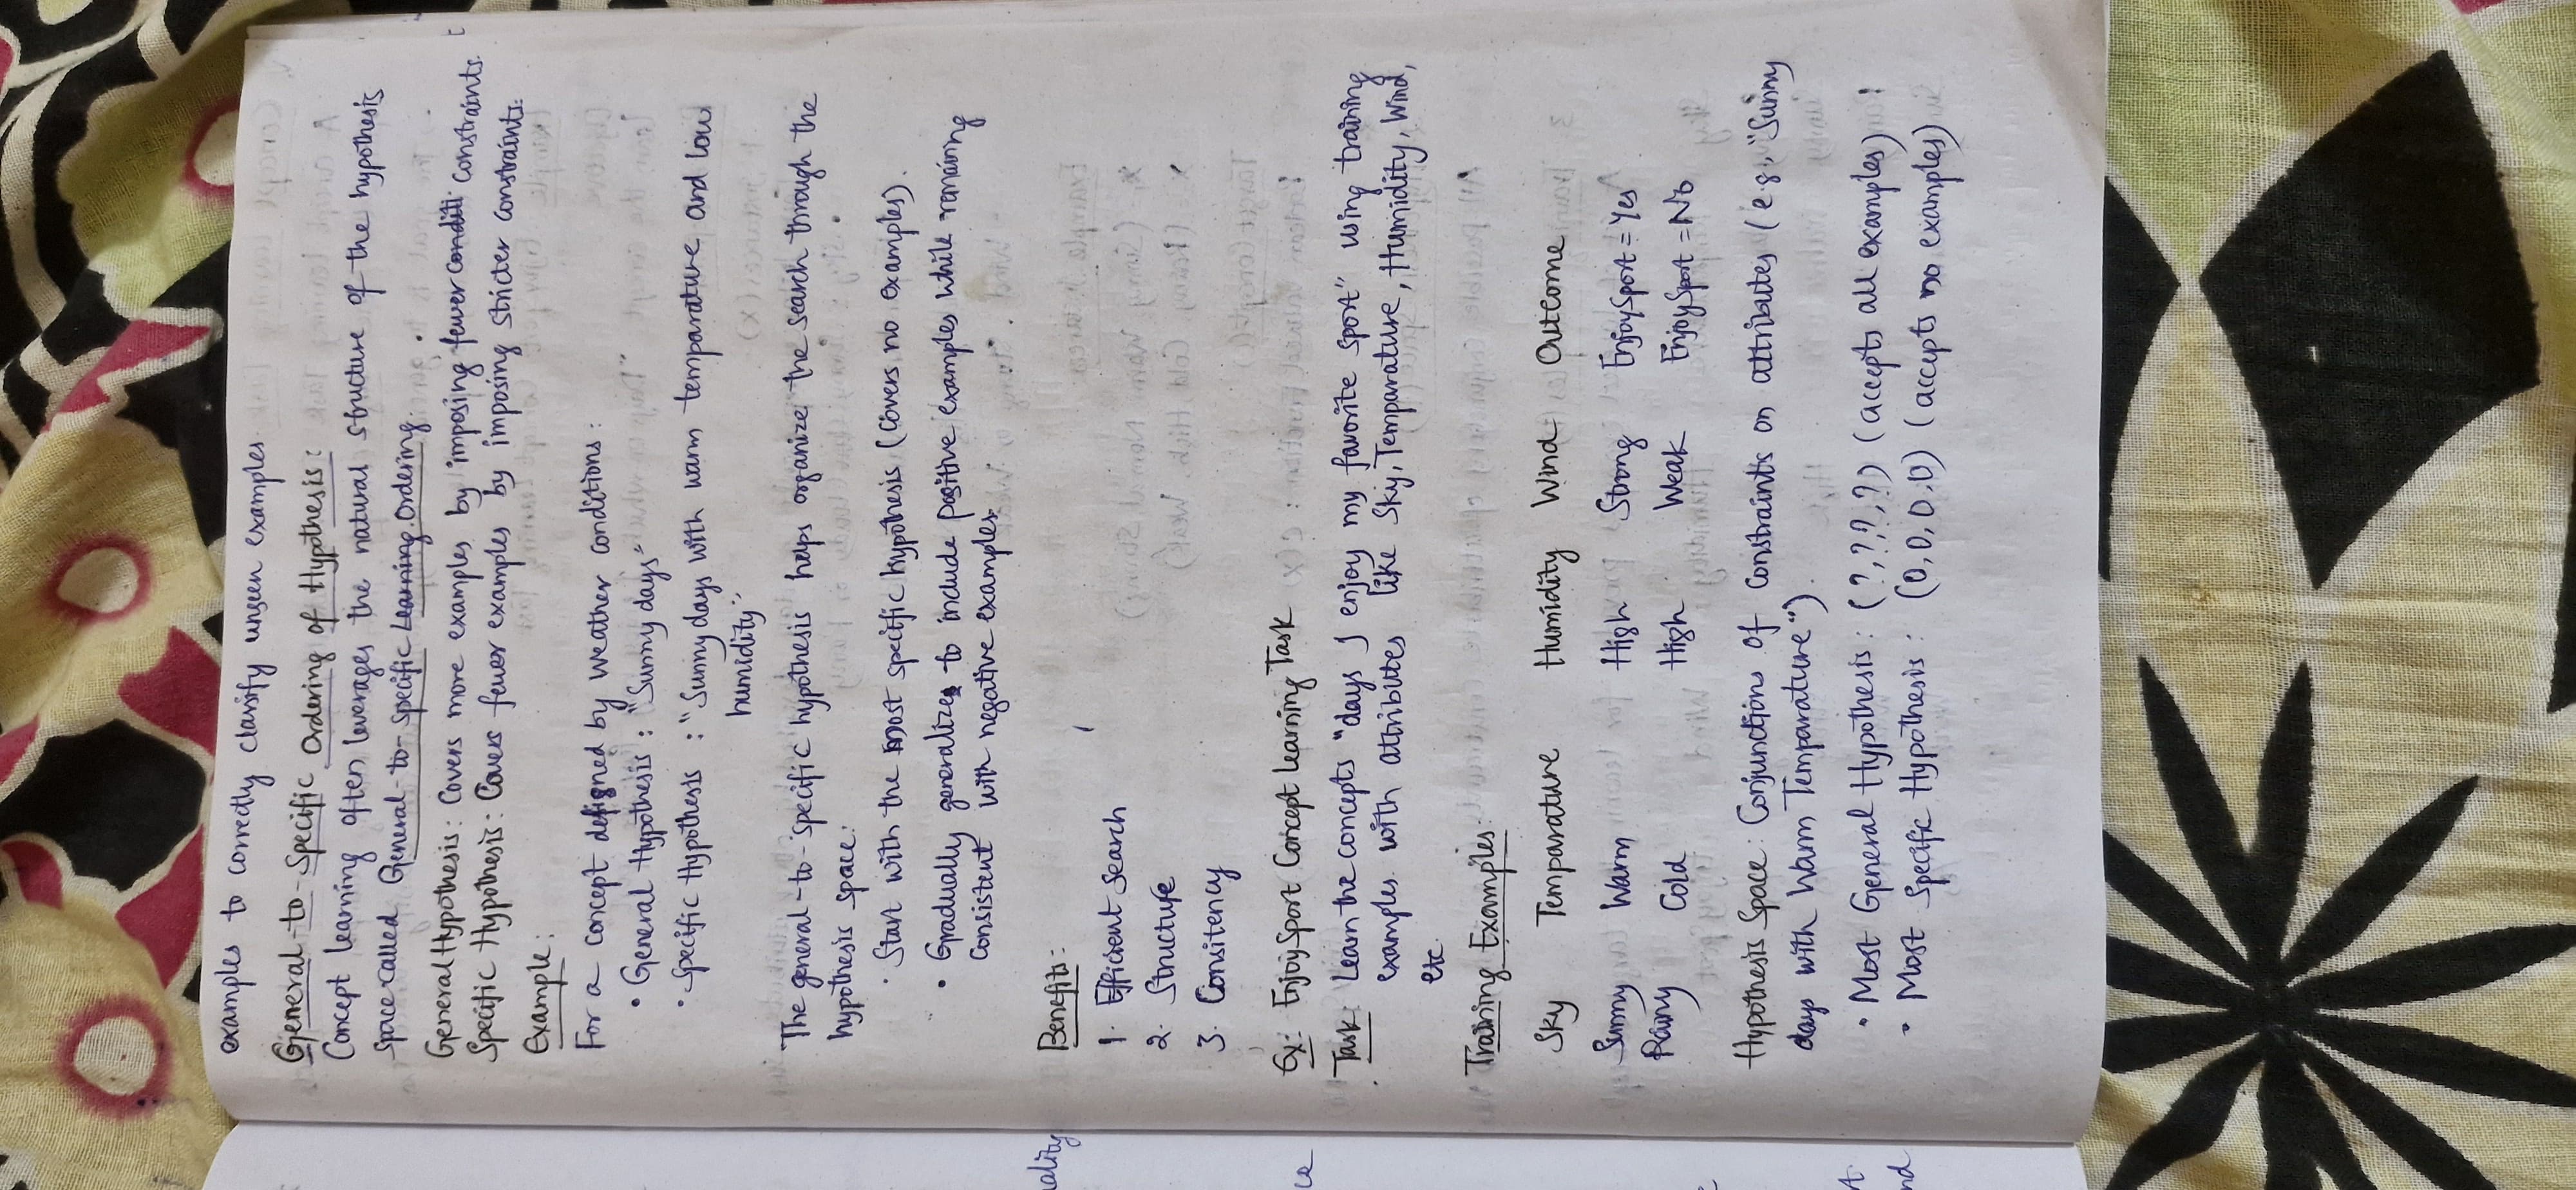 examples to correctly classify unseen examples.
General-to-Specific Ordering of Hypothesis:
Concept learning often leverages the natural structure of the hypothesis
space called General-to-Specific Learning Ordering.
General Hypothesis: Covers more examples by imposing fewer conditi constraints.
Specific Hypothesis: Covers fewer examples by imposing stricter constraints.
Example:
For a concept defigned by weather conditions:
• General Hypothesis: "Sunny days"
• Specific Hypothesis: "Sunny days with warm temparature and low
humidity"
The general-to-specific hypothesis helps organize the search through the
hypothesis space:
• Start with the most specific hypothesis (Covers no examples).
• Gradually generalizes to include positive examples while remaining
consistent with negative examples.
Benefits:
1. Efficient Search
2. Structure
3. Consitency
Ex: EnjoySport Concept Learning Task
Task: Learn the concepts "days I enjoy my favorite sport" using training
examples with attributes like Sky, Temparature, Humidity, Wind,
etc.
Training Examples:
Sky Temparature Humidity Wind Outcome
Sunny Warm High Strong EnjoySport = Yes
Rainy Cold High Weak EnjoySport = No
Hypothesis Space: Conjunctions of constraints on attributes (e.g., "Sunny
days with Warm Temparature").
• Most General Hypothesis: (?,?,?,?) (accepts all examples)
• Most Specific Hypothesis: (0,0,0,0) (accepts no examples)